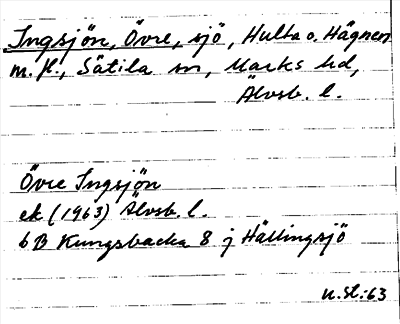 Ingsjön, Övre, sjö, Hulta o. Hägnen
m. fl., Sätila sn, Marks hd,
Älvsb. l.
Övre Ingsjön
ek (1963) Älvsb. l.
6B Kungsbacka 8 j Hällingsjö
n. St.:63